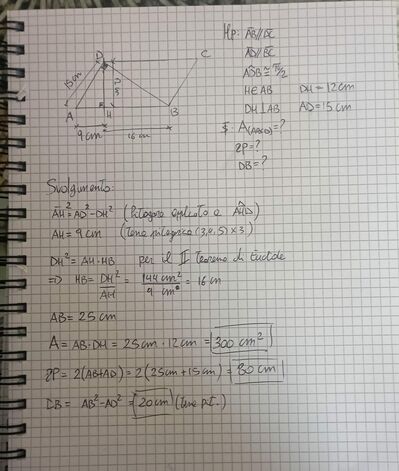 Hp: AB//DC
AD//BC
AD̂B ≅ π/2
H∈AB DH = 12cm
DH⊥AB AD=15cm
A(ABCD)=?
2P=?
DB=?
D C
15cm
12
A H B
9cm 16cm
Svolgimento:
AH² = AD² - DH² (Pitagora applicato a AHD)
AH = 9cm (terna pitagorica (3,4,5) × 3)
DH² = AH · HB per il II Teorema di Euclide
⇒ HB = DH²/AH = 144 cm²/9 cm = 16 cm
AB = 25cm
A = AB·DH = 25cm · 12cm = 300 cm²
2P = 2(AB+AD) = 2(25cm+15cm) = 80cm
DB = AB²-AD² = 20cm (terna pit.)